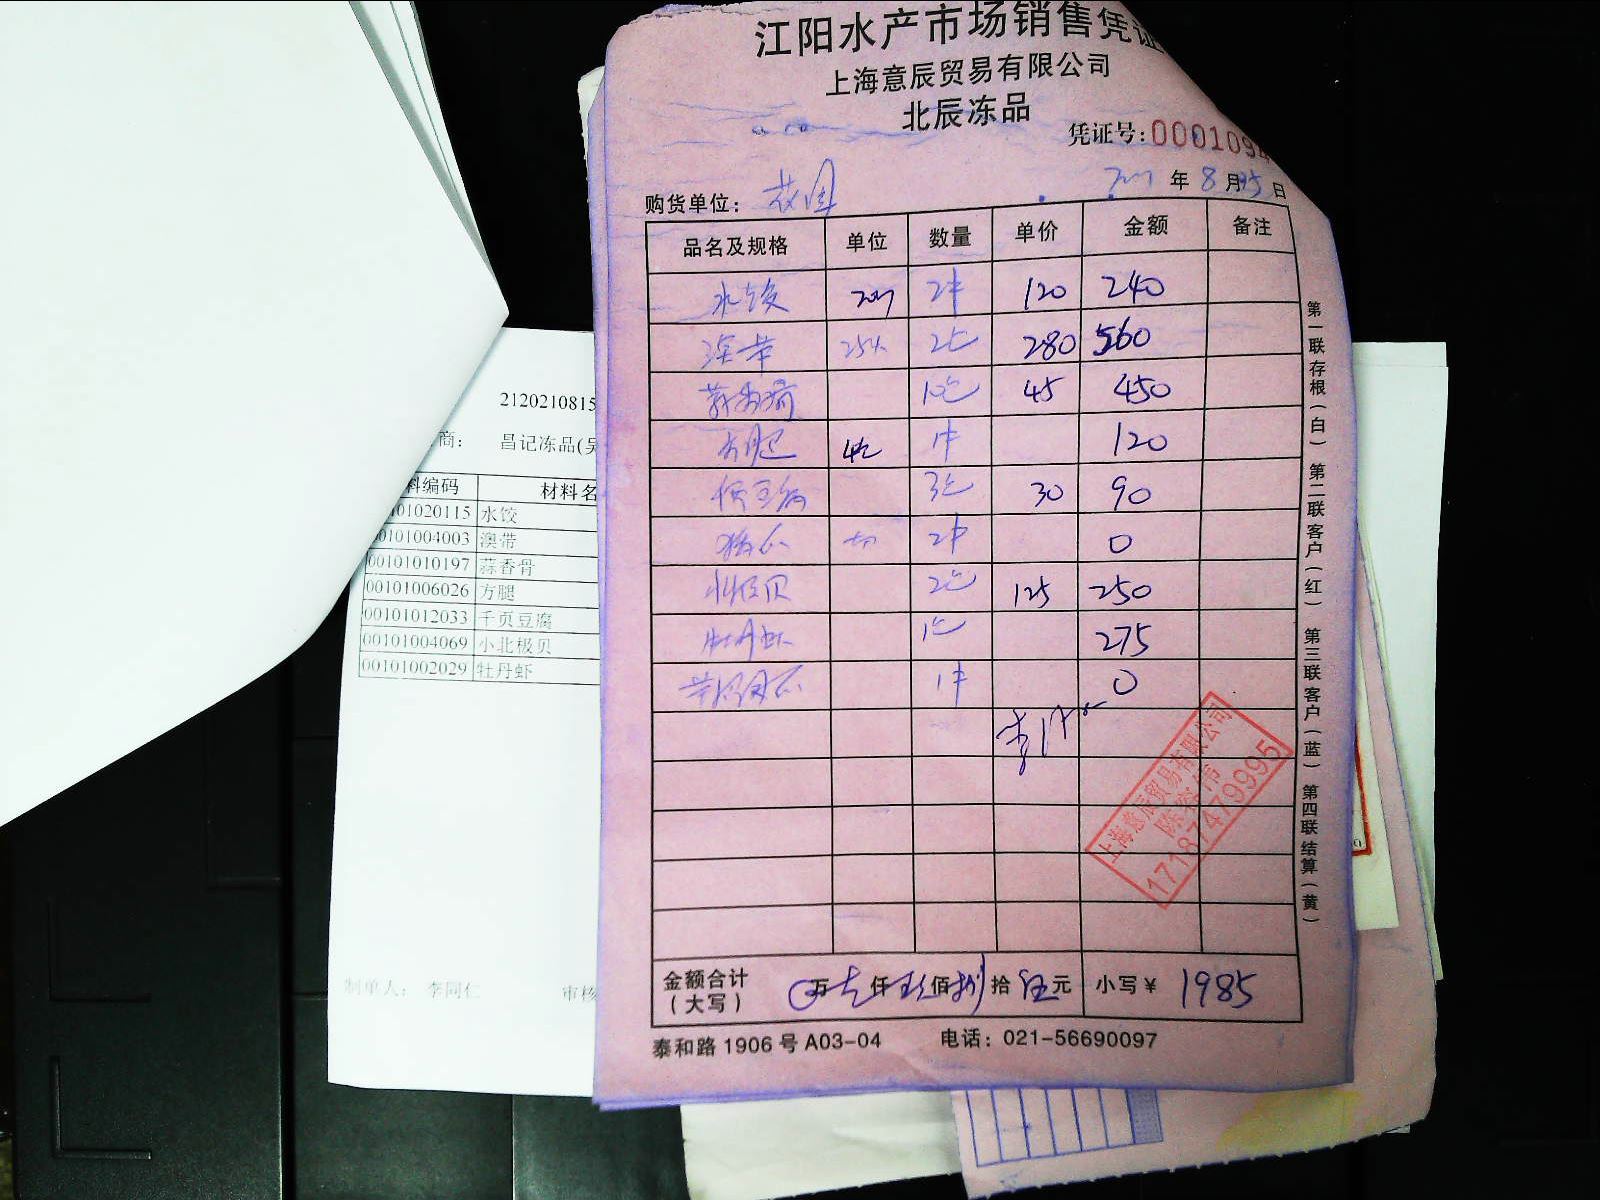 江阳水产市场销售凭证
上海意辰贸易有限公司
北辰冻品
凭证号:0001094
购货单位: 花园 年 8 月 25 日
品名及规格 单位 数量 单价 金额 备注
水饺 2件 120 240
澳带 2包 280 560
蒜香骨 10包 45 450
方腿 1件 120
千页豆腐 3包 30 90
2件 0
小北极贝 2包 125 250
牡丹虾 1包 275
1件 0
上海意辰贸易有限公司
17187479995
金额合计(大写) 万 仟 佰 捌 拾 伍 元 小写¥ 1985
泰和路1906号A03-04 电话: 021-56690097
第一联存根(白) 第二联客户(红) 第三联客户(蓝) 第四联结算(黄)
2120210815
商: 昌记冻品(吴
料编码 材料名
01020115 水饺
00101004003 澳带
00101010197 蒜香骨
00101006026 方腿
00101012033 千页豆腐
00101004069 小北极贝
00101002029 牡丹虾
制单人: 李同仁 审核